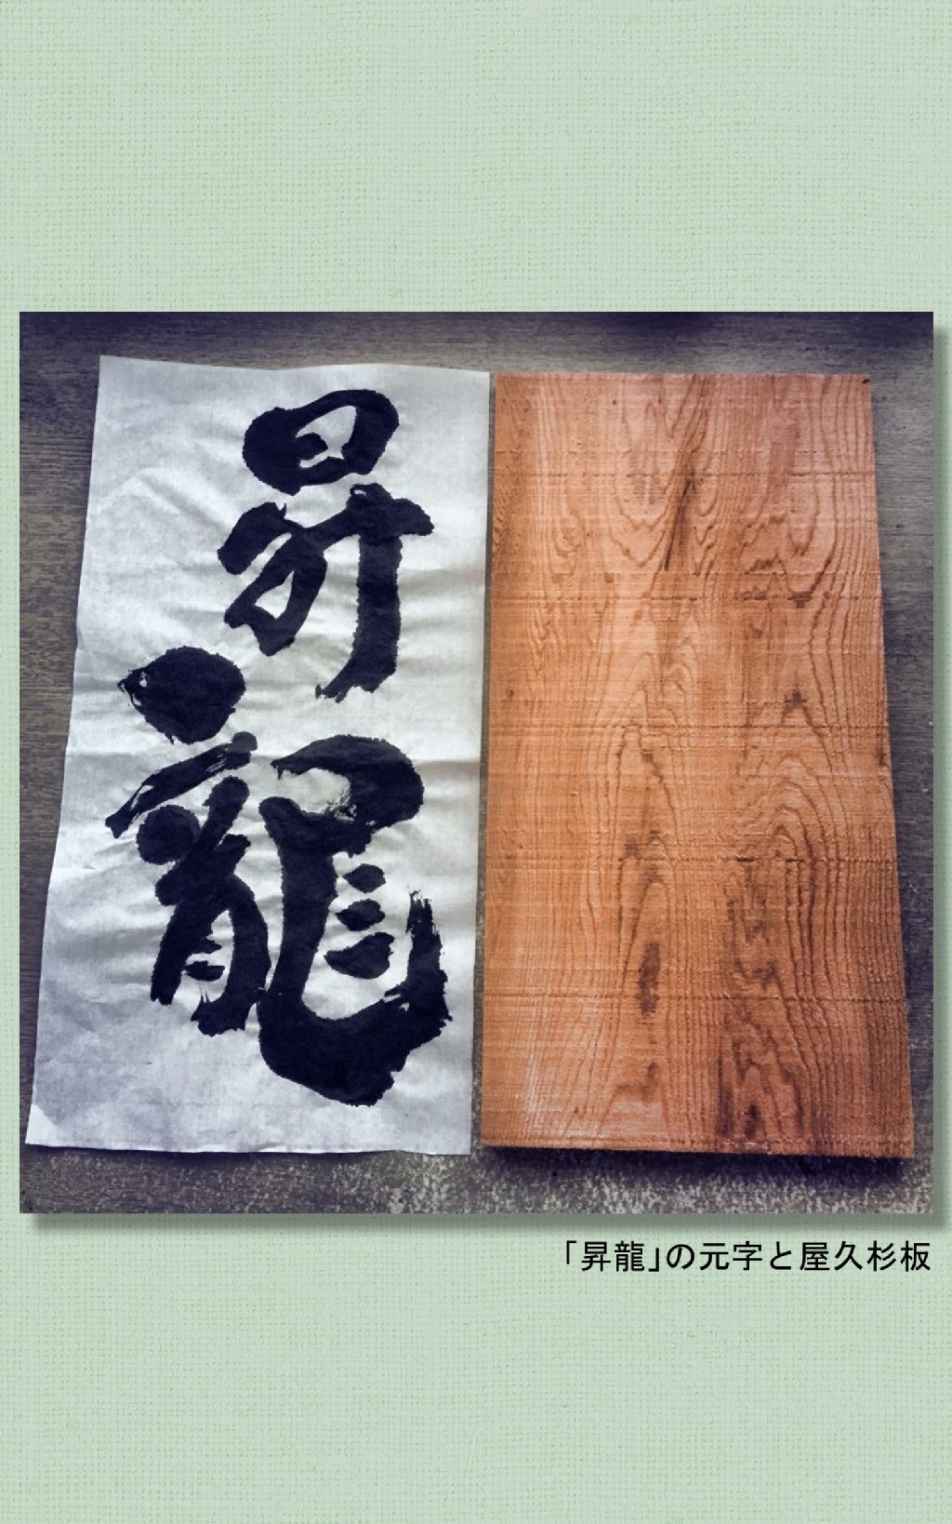 昇龍
「昇龍」の元字と屋久杉板